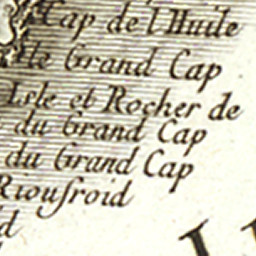 Cap de l'Huile
Ile Grand Cap
Isle et Rocher de
du Grand Cap
du Grand Cap
Riousroid
d